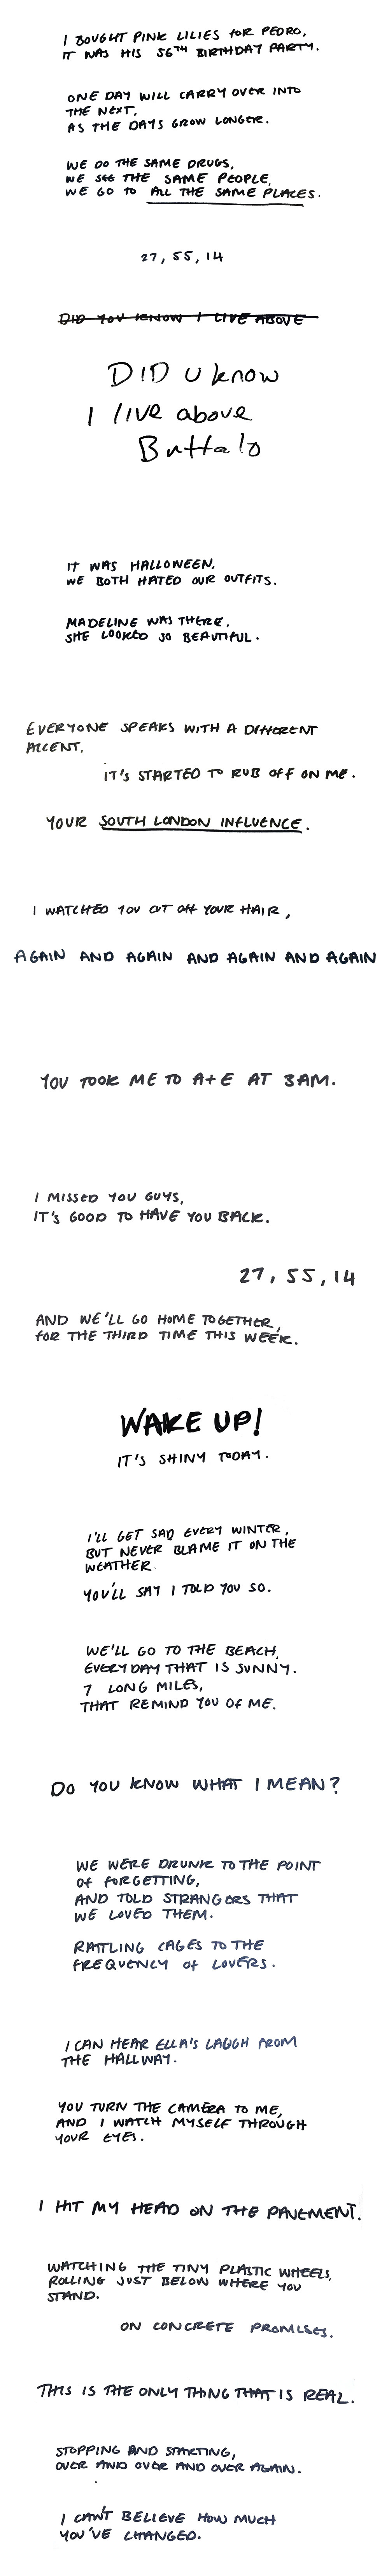 I BOUGHT PINK LILIES FOR PEDRO,
IT WAS HIS 56TH BIRTHDAY PARTY.
ONE DAY WILL CARRY OVER INTO
THE NEXT,
AS THE DAYS GROW LONGER.
WE DO THE SAME DRUGS,
WE SEE THE SAME PEOPLE,
WE GO TO ALL THE SAME PLACES.
27, 55, 14
DID YOU KNOW I LIVE ABOVE
DID U know
I live above
Buffalo
IT WAS HALLOWEEN,
WE BOTH HATED OUR OUTFITS.
MADELINE WAS THERE,
SHE LOOKED SO BEAUTIFUL.
EVERYONE SPEAKS WITH A DIFFERENT
ACCENT,
IT'S STARTED TO RUB OFF ON ME.
YOUR SOUTH LONDON INFLUENCE.
I WATCHED YOU CUT OFF YOUR HAIR,
AGAIN AND AGAIN AND AGAIN AND AGAIN
YOU TOOK ME TO A+E AT 3AM.
I MISSED YOU GUYS,
IT'S GOOD TO HAVE YOU BACK.
27, 55, 14
AND WE'LL GO HOME TOGETHER,
FOR THE THIRD TIME THIS WEEK.
WAKE UP!
IT'S SHINY TODAY.
I'LL GET SAD EVERY WINTER,
BUT NEVER BLAME IT ON THE
WEATHER.
YOU'LL SAY I TOLD YOU SO.
WE'LL GO TO THE BEACH,
EVERYDAY THAT IS SUNNY.
7 LONG MILES,
THAT REMIND YOU OF ME.
DO YOU KNOW WHAT I MEAN?
WE WERE DRUNK TO THE POINT
OF FORGETTING,
AND TOLD STRANGERS THAT
WE LOVED THEM.
RATTLING CAGES TO THE
FREQUENCY OF LOVERS.
I CAN HEAR ELLA'S LAUGH FROM
THE HALLWAY.
YOU TURN THE CAMERA TO ME,
AND I WATCH MYSELF THROUGH
YOUR EYES.
I HIT MY HEAD ON THE PAVEMENT.
WATCHING THE TINY PLASTIC WHEELS,
ROLLING JUST BELOW WHERE YOU
STAND.
ON CONCRETE PROMISES.
THIS IS THE ONLY THING THAT IS REAL.
STOPPING AND STARTING,
OVER AND OVER AND OVER AGAIN.
I CAN'T BELIEVE HOW MUCH
YOU'VE CHANGED.